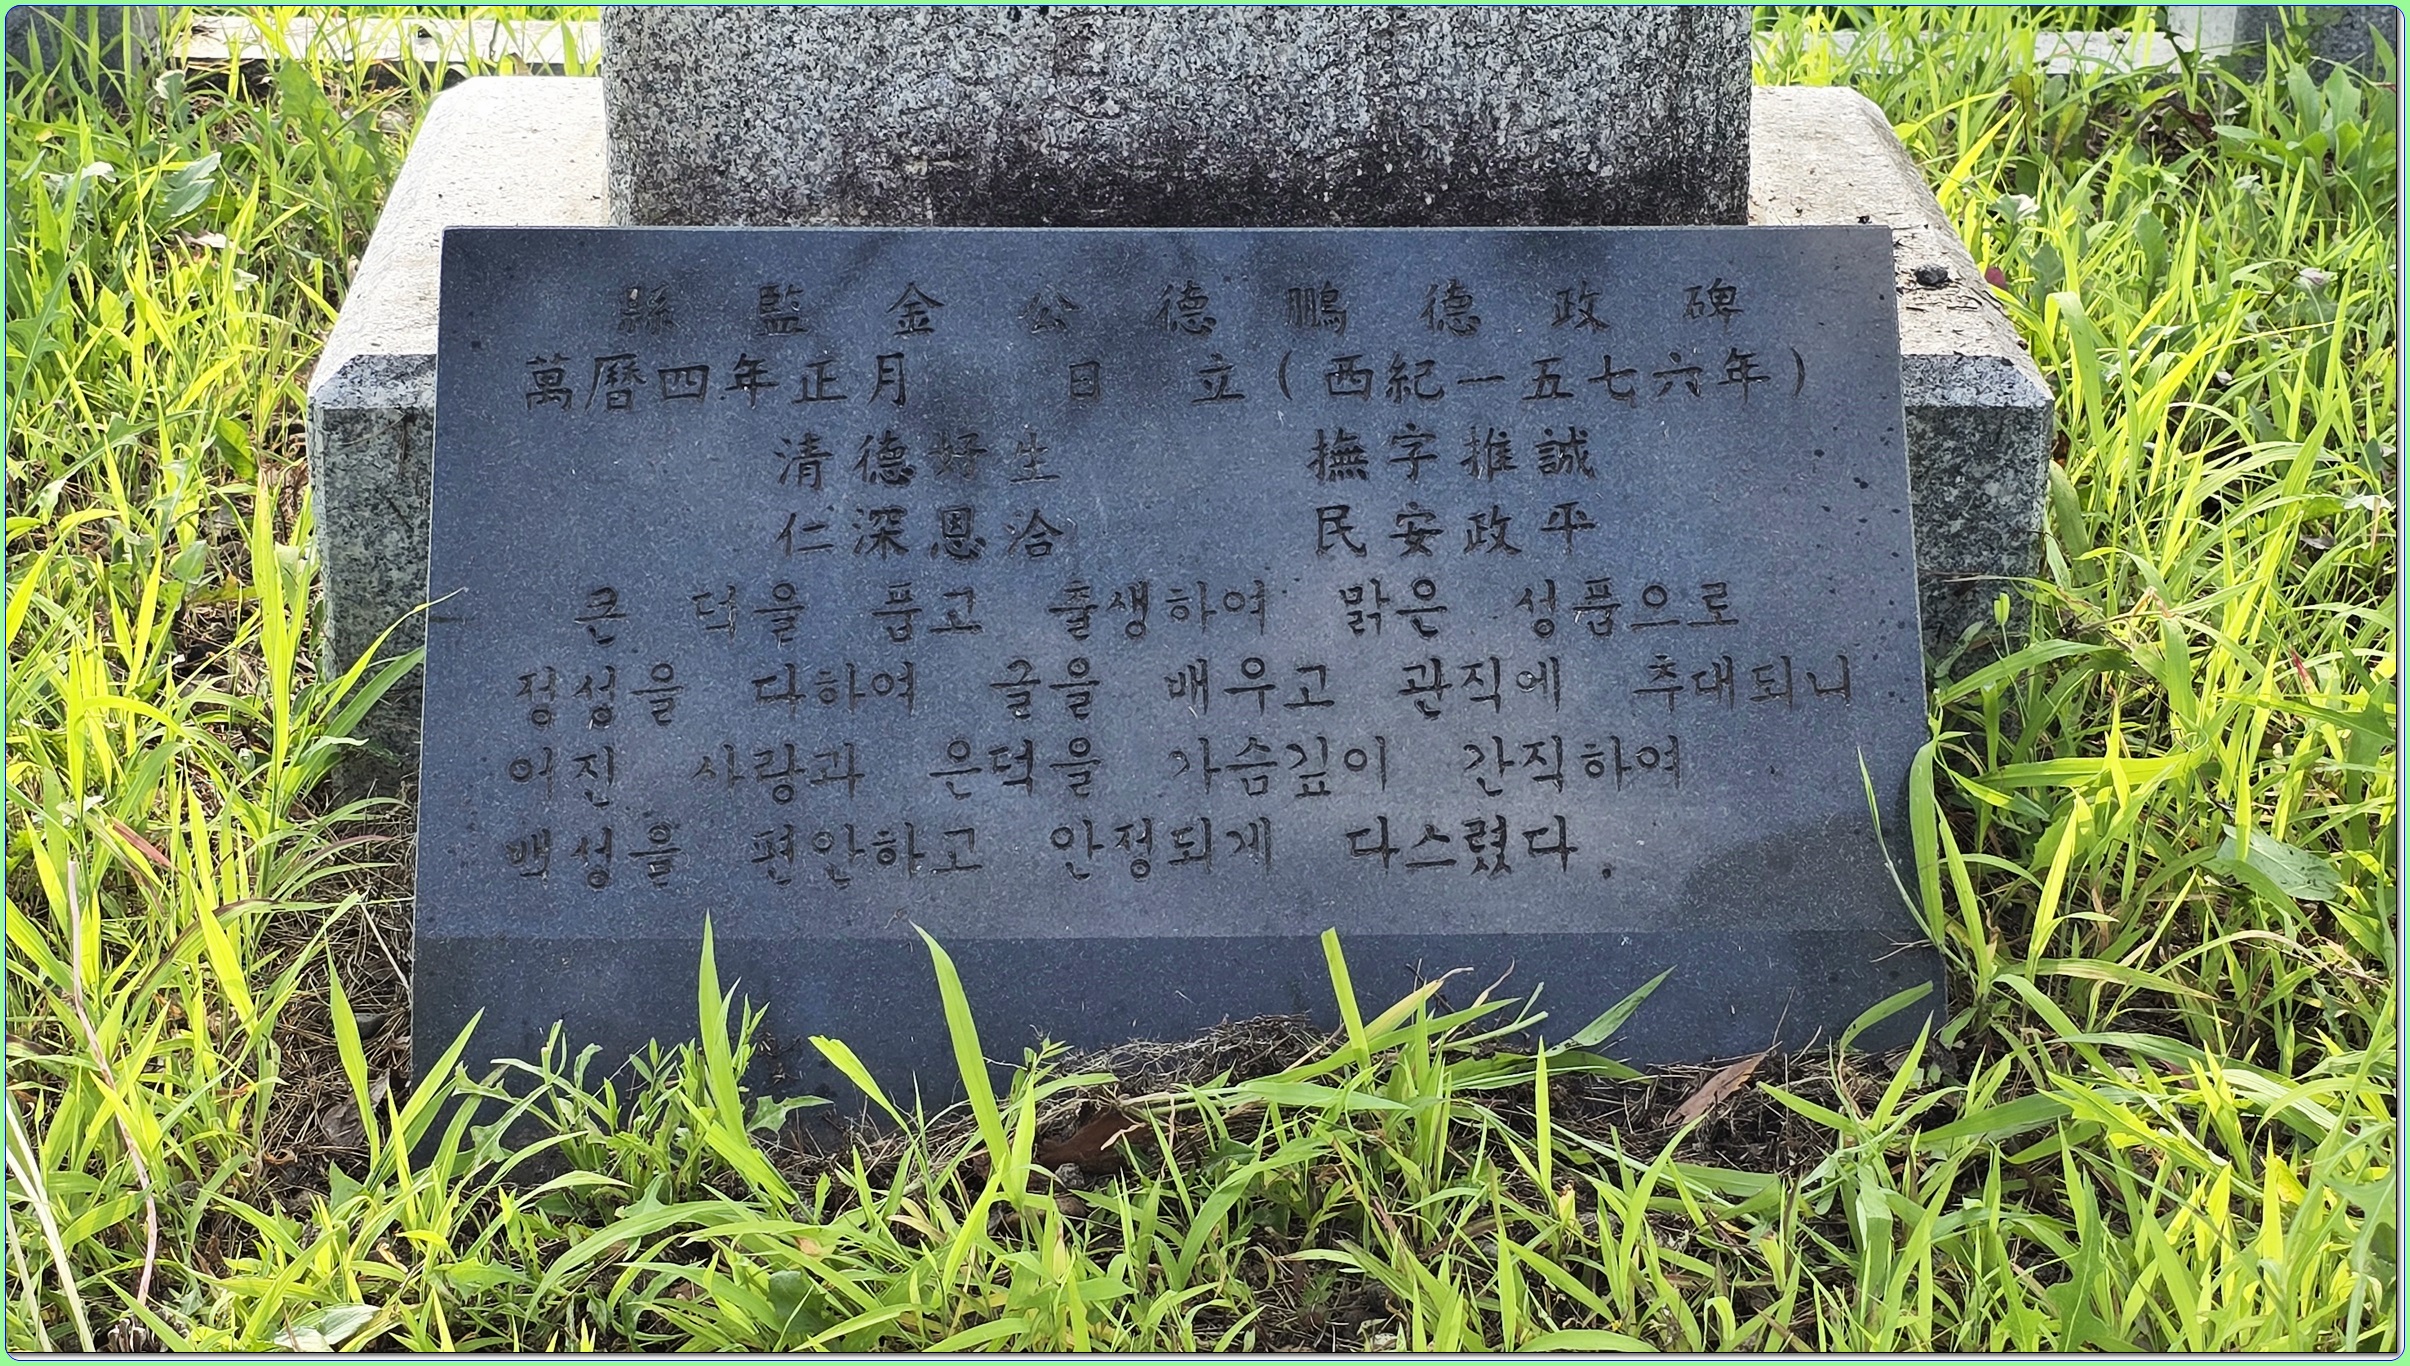 縣監金公德鵬德政碑
萬曆四年正月 日 立(西紀一五七六年)
清德好生 撫字推誠
仁深恩洽 民安政平
큰 덕을 품고 출생하여 맑은 성품으로
정성을 다하여 글을 배우고 관직에 추대되니
어진 사랑과 은덕을 가슴깊이 간직하여
백성을 편안하고 안정되게 다스렸다.